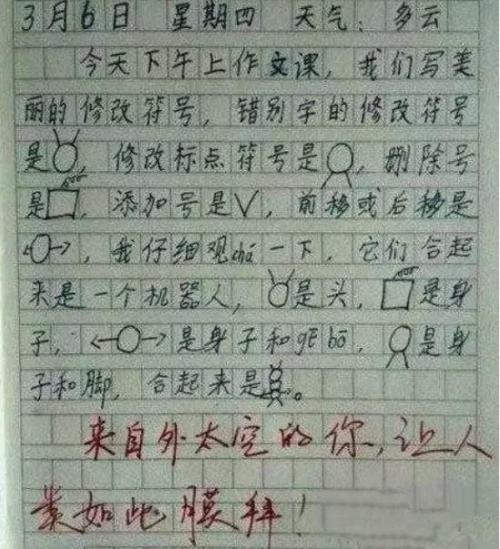 3月6日 星期四 天气：多云
今天下午上作文课，我们写美
丽的修改符号，错别字的修改符号
是，修改标点符号是，删除号
是，添加号是√，前移或后移是
←○→，我仔细观chá一下，它们合起
来是一个机器人，是头，是身
子，←○→是身子和gē bō，是身
子和脚，合起来是。
来自外太空的你，让人
类如此膜拜！